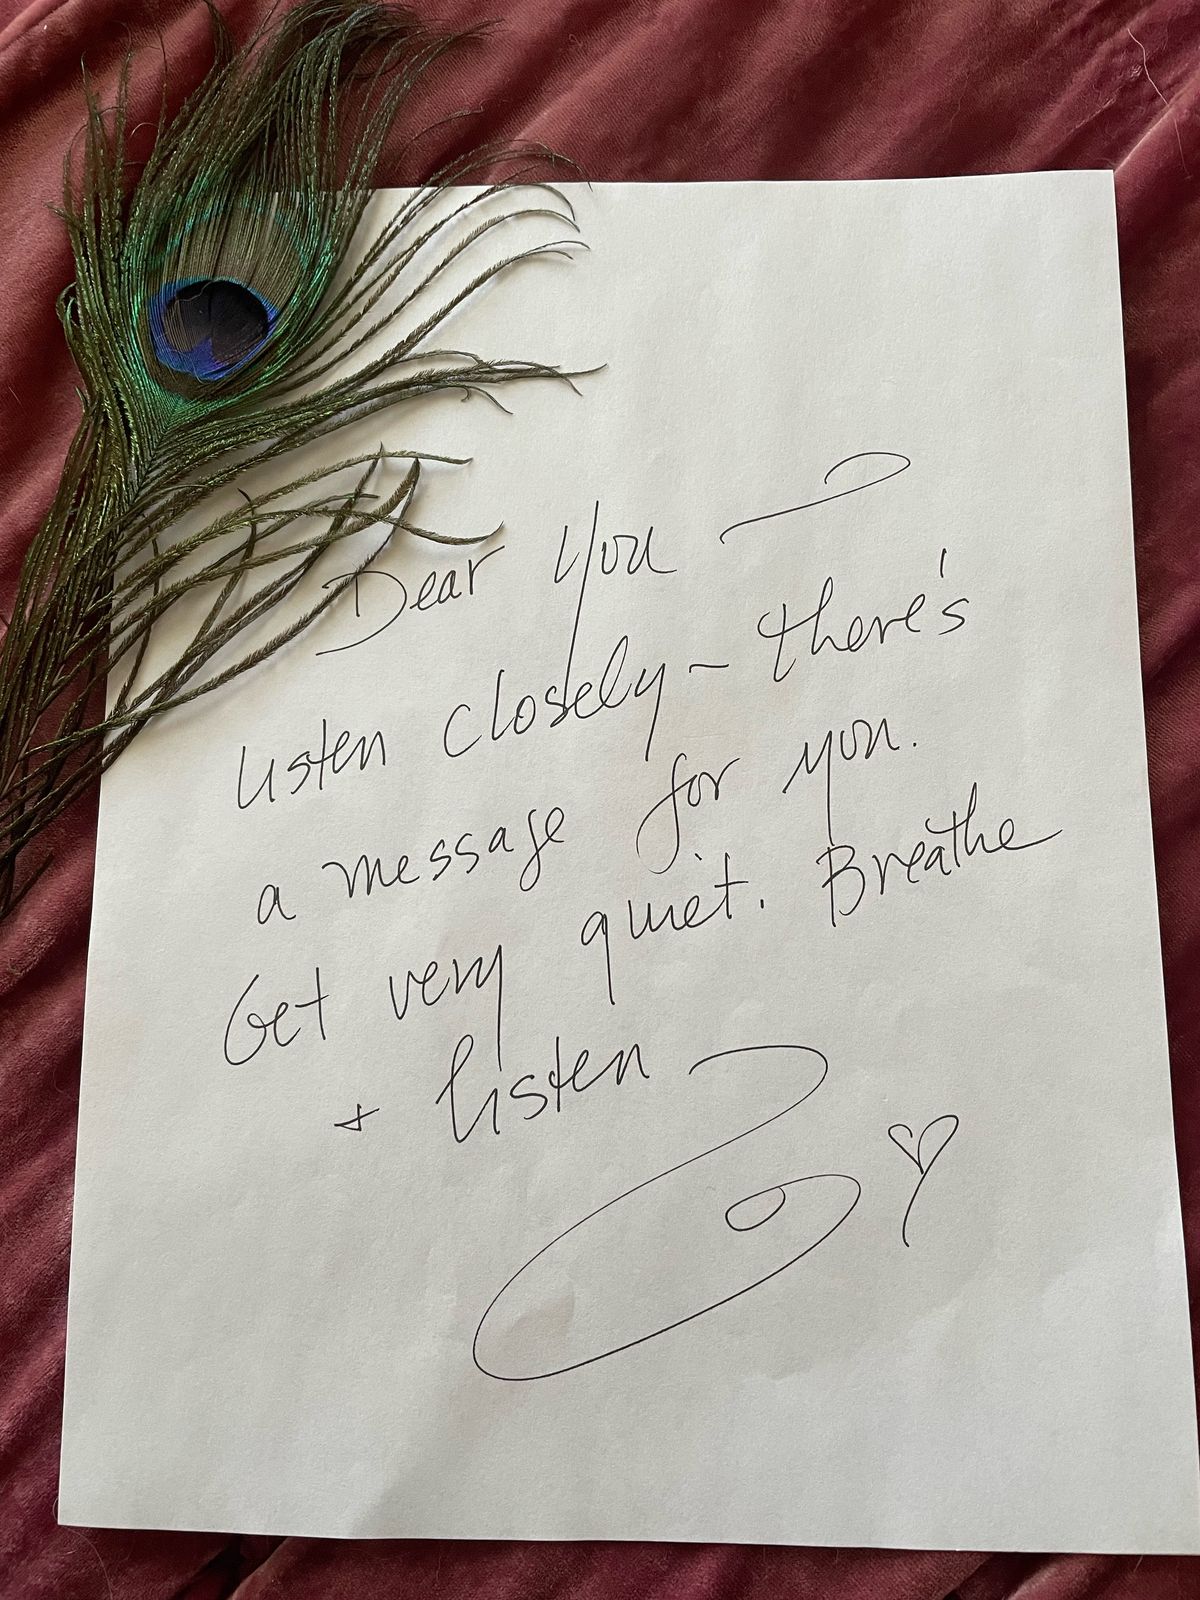 Dear You
Listen closely - there's
a message for you.
Get very quiet. Breathe
+ listen